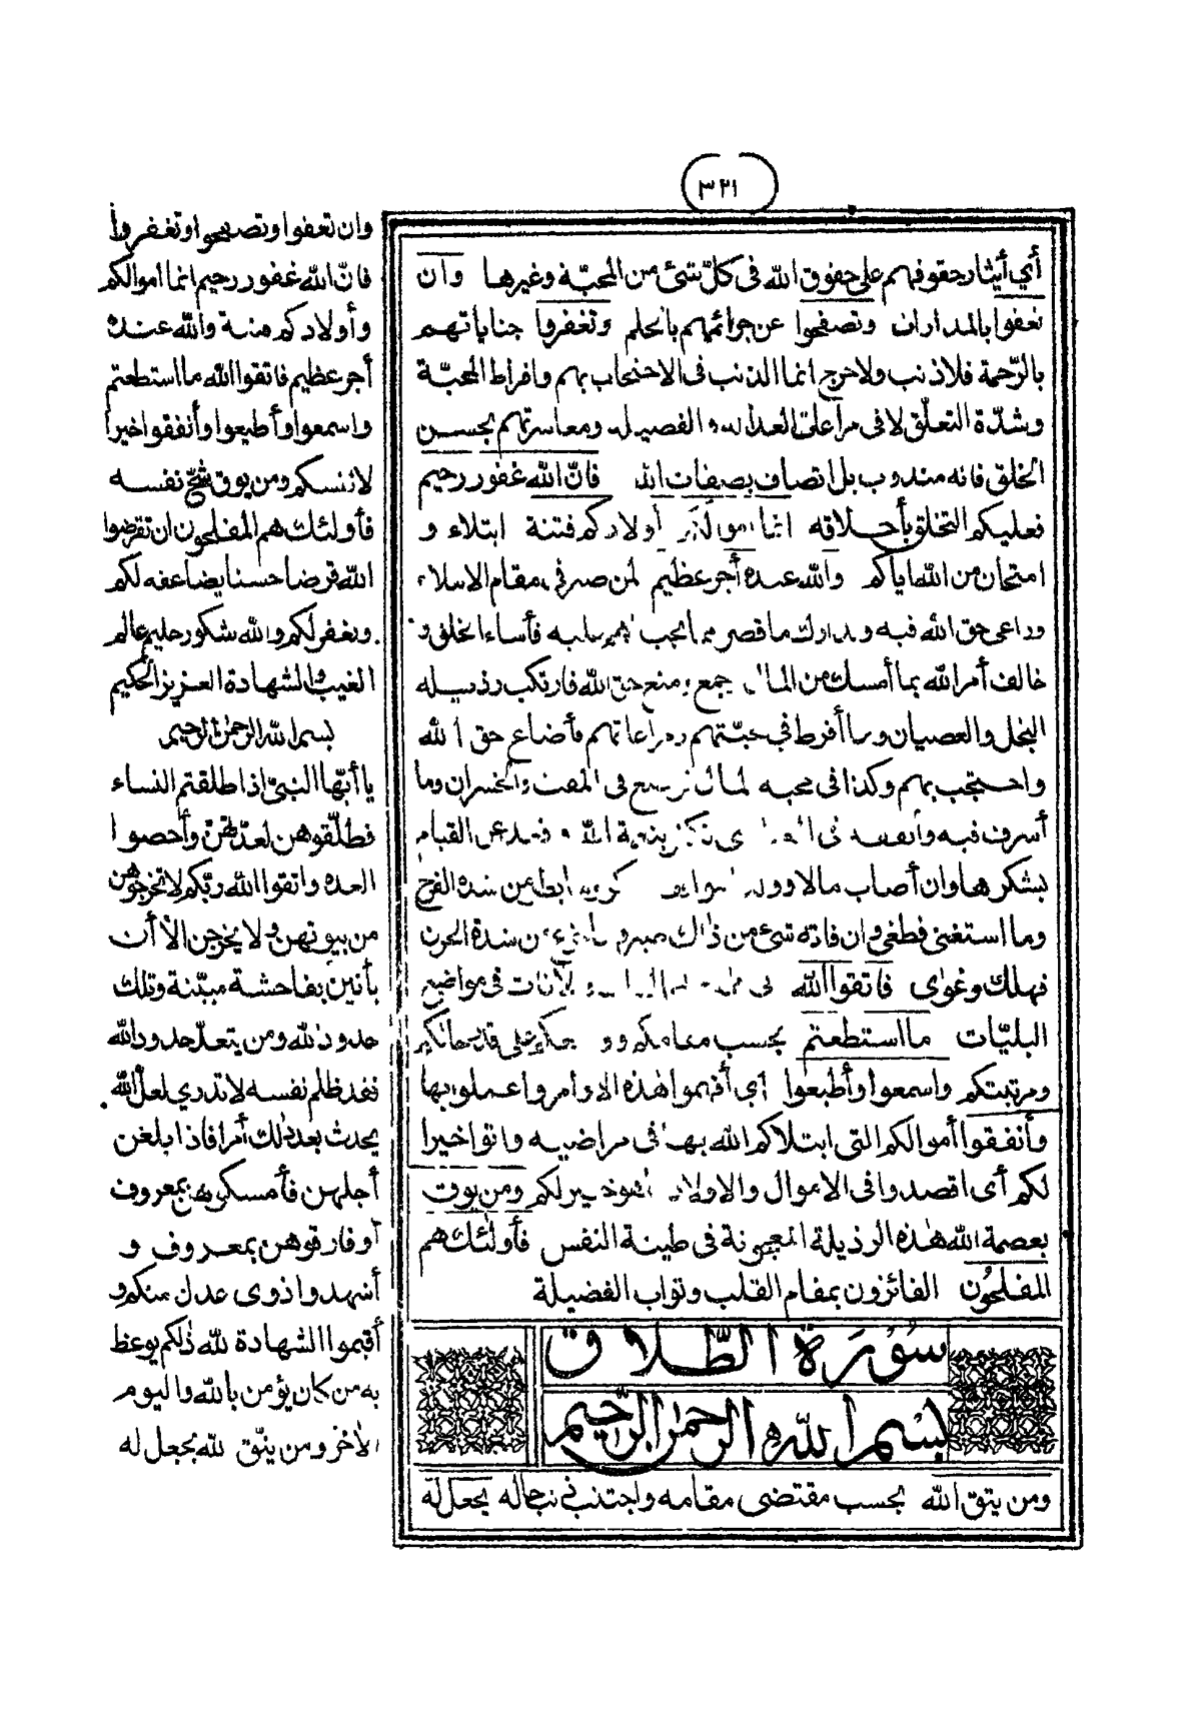 ٣٢١
أي أيثار حقوقهم على حقوق الله في كلّ شئ من المحبّة وغيرها وان
تعفوا بالمداراة وتصفحوا عن جرائمهم بالحلم وتغفروا جناياتهم
بالرّحمة فلا ذنب ولا حرج انما الذنب في الاحتجاب بهم وافراط المحبّة
وشدّة التعلّق لا في مراعاة العدالة والفضيلة ومعاشرتهم بحسن
الخلق فانه مندوب بل اتصاف بصفات الله فانّ الله غفور رحيم
فعليكم التخلق بأخلاقه انما أموالكم أولادكم فتنة ابتلاء و
امتحان من الله اياكم والله عنده أجر عظيم لمن صبر في مقام الابتلاء
وراعى حق الله فيه وتدارك ما قصر عليه فأساء الخلق و
خالف أمر الله بما أمسك من المال جمع ومنع حق الله فارتكب رذيلة
البخل والعصيان وما أفرط في محبّتهم ومراعاتهم فأضاع حق الله
واحتجب بهم وكذا في محبة المال في المقت والخسران وما
أسرف فيه وأنفقه في القيام
بشكرها وان أصاب مالا وولدا من شدة الفرح
وما استغنى فطغى وان فاته شئ من ذلك صبر من شدة الحزن
فهلك وغوى فاتقوا الله في مواضع
البليّات ما استطعتم بحسب مقامكم على قدر حالكم
ومرتبتكم واسمعوا وأطيعوا أي أفهموا هذه الاوامر واعملوا بها
وأنفقوا أموالكم التي ابتلاكم الله بها في مراضيه واتوا خيرا
لكم أى اقصدوا في الاموال والاولاد خير لكم ومن يوق
بعصمة الله هذه الرذيلة المعجونة في طينة النفس فأولئك هم
المفلحون الفائزون بمقام القلب وثواب الفضيلة
سُورَة الطَّلَاق
بسم الله الرحمن الرحيم
ومن يتق الله بحسب مقتضى مقامه واجتنب في حاله يجعل له
وان تعفوا وتصفحوا وتغفروا
فانّ الله غفور رحيم انما اموالكم
وأولادكم فتنة والله عنده
أجر عظيم فاتقوا الله ما استطعتم
واسمعوا وأطيعوا وأنفقوا خيرا
لانفسكم ومن يوق شحّ نفسه
فأولئك هم المفلحون ان تقرضوا
الله قرضا حسنا يضاعفه لكم
ويغفر لكم والله شكور حليم عالم
الغيب والشهادة العزيز الحكيم
بسم الله الرحمن الرحيم
يا أيّها النبيّ اذا طلقتم النساء
فطلّقوهن لعدّتهنّ وأحصوا
العدة واتقوا الله ربّكم لا تخرجوهن
من بيوتهن ولا يخرجن الا أن
يأتين بفاحشة مبيّنة وتلك
حدود الله ومن يتعدّ حدود الله
فقد ظلم نفسه لا تدري لعل الله
يحدث بعد ذلك أمرا فاذا بلغن
أجلهن فأمسكوهن بمعروف
أو فارقوهن بمعروف و
أشهدوا ذوى عدل منكم و
أقيموا الشهادة لله ذلكم يوعظ
به من كان يؤمن بالله واليوم
الآخر ومن يتّق الله يجعل له